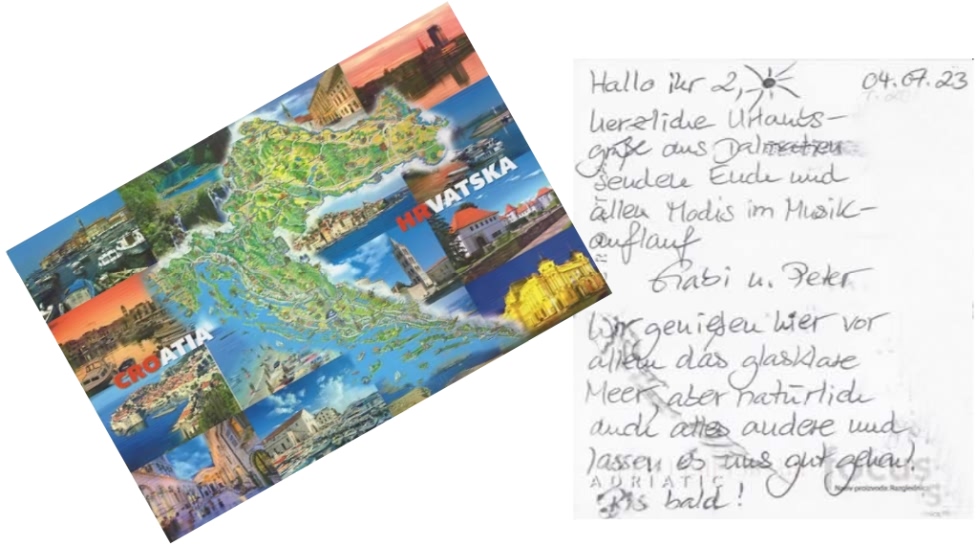 CROATIA
HRVATSKA
Hallo ihr 2, 04.07.23
herzliche Urlaubs-
grüße aus Dalmatien
senden Euch und
allen Modis im Musik-
auflauf
Gabi u. Peter
Wir genießen hier vor
allem das glasklare
Meer aber natürlich
auch alles andere und
lassen es uns gut gehen!
Bis bald!
ADRIATIC
focus